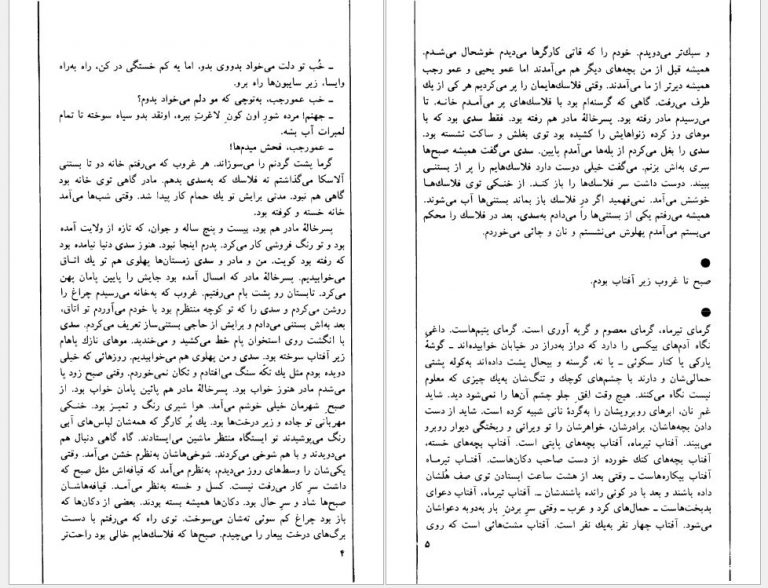 ـ خُب تو دلت می‌خواد بدووی بدو. اما یه کم خستگی در کن، راه به‌راه
وایسا، زیر سایبون‌ها راه برو.
ـ خب عمورجب، به‌نوچی که مو دلم می‌خواد بدوم؟
ـ جهنم! مرده شور اون کون لاغرت ببره، اونقد بدو سیاه سوخته تا تمام
لمبرات آب بشه.
ـ عمورجب، فحش میدم‌ها!
گرما پشت گردنم را می‌سوزاند. هر غروب که می‌رفتم خانه دو تا بستنی
آلاسکا می‌گذاشتم ته فلاسك که به‌سدی بدهم. مادر گاهی توی خانه بود
گاهی هم نبود. مدتی برایش تو یك حمام کار پیدا شد. وقتی شب‌ها می‌آمد
خانه خسته و کوفته بود.
پسرخالهٔ مادر هم بود، بیست و پنج ساله و جوان، که تازه از ولایت آمده
بود و تو رنگ فروشی کار می‌کرد. پدرم اینجا نبود. هنوز سدی دنیا نیامده بود
که رفته بود کویت. من و مادر و سدی زمستان‌ها پهلوی هم تو یك اتـاق
می‌خوابیدیم. پسرخالهٔ مادر که امسال آمده بود جایش را پایین پامان پهن
می‌کرد. تابستان رو پشت بام می‌رفتیم. غروب که به‌خانه می‌رسیدم چراغ را
روشن می‌کردم و سدی را که تو کوچه منتظرم بود با خودم می‌آوردم تو اتاق،
بعد به‌اش بستنی می‌دادم و برایش از حاجی بستنی‌ساز تعریف می‌کردم. سدی
با انگشت روی استخوان پام خط می‌کشید و می‌خندید. موهای نازك پاهام
زیر آفتاب سوخته بود. سدی و من پهلوی هم می‌خوابیدیم. روزهائی که خیلی
دویده بودم مثل یك تکّه سنگ می‌افتادم و تکان نمی‌خوردم. وقتی صبح زود پا
می‌شدم مادر هنوز خواب بود. پسرخالهٔ مادر هم پائین پامان خواب بود. از
صبح شهرمان خیلی خوشم می‌آمد. هوا شیری رنگ و تمیـز بود. خنـکی
مهربانی تو جاده و زیر درخت‌ها بود. یك بُر کارگر که همه‌شان لباس‌های آبی
رنگ می‌پوشیدند تو ایستگاه منتظر ماشین می‌ایستادند. گاه گاهی دنبال هم
می‌دویدند و با هم شوخی می‌کردند. شوخی‌هاشان به‌نظرم خشن می‌آمد. وقتی
یکی‌شان را وسط‌های روز می‌دیدم، به‌نظرم می‌آمد که قیافه‌اش مثل صبح که
داشت سرِ کار می‌رفت نیست. کسل و خسته به‌نظر می‌آمـد. قیافه‌هاشـان
صبح‌ها شاد و سر حال بود. دکان‌ها همیشه بسته بودند. بعضی از دکان‌ها که
باز بود چراغ کم سوئی ته‌شان می‌سوخت. توی راه که می‌رفتم با دست
برگ‌های درخت بیعار را می‌چیدم. صبح‌ها که فلاسك‌هایم خالی بود راحت‌تر
۴
و سبك‌تر می‌دویدم. خودم را که قاتی کارگرها می‌دیدم خوشحال می‌شدم.
همیشه قبل از من بچه‌های دیگر هم می‌آمدند اما عمو یحیی و عمو رجب
همیشه دیرتر از ما می‌آمدند. وقتی فلاسك‌هایمان را پر می‌کردیم هر کی از یك
طرف می‌رفت. گاهی که گرسنه‌ام بود با فلاسك‌های پر می‌آمـدم خانـه. تا
می‌رسیدم مادر رفته بود. پسرخالهٔ مادر هم رفته بود. فقط سدی بود که با
موهای وز کرده زنواهایش را کشیده بود توی بغلش و ساکت نشسته بود.
سدی را بغل می‌کردم از پله‌ها می‌آمدم پایین. سدی می‌گفت همیشه صبح‌ها
سری به‌اش بزنم. می‌گفت خیلی دوست دارد فلاسك‌هایم را پر از بستنـی
ببیند. دوست داشت سر فلاسك‌ها را باز کنـد. از خنـکی توی فلاسك‌هـا
خوشش می‌آمد. نمی‌فهمید اگر درِ فلاسك باز بماند بستنی‌ها آب می‌شوند.
همیشه می‌رفتم یکی از بستنی‌ها را می‌دادم به‌سدی، بعد در فلاسك را محکم
می‌بستم می‌آمدم پهلوش می‌نشستم و نان و چائی می‌خوردم.
●
صبح تا غروب زیر آفتاب بودم.
●
گرمای تیرماه، گرمای معصوم و گریه آوری است. گرمای یتیم‌هاست. داغیِ
نگاه آدم‌های بیکسی را دارد که دراز به‌دراز در خیابان خوابیده‌اند ـ گوشهٔ
پارکی یا کنار سکوئی ـ یا نه، گرسنه و بیحال پشت داده‌اند به‌کوله پشتی
حمالی‌شان و دارند با چشم‌های کوچك و تنگ‌شان به‌یك چیزی که معلوم
نیست نگاه می‌کنند. هیچ وقت افق جلو چشم آن‌ها را نمی‌شود دید. شاید
غمِ نان، ابرهای روبرویشان را به‌گردهٔ نانی شبیه کرده است. شاید از دست
دادن بچه‌هاشان، برادرشان، خواهرشان را تو ویرانی و ریختگی دیوار روبرو
می‌بیند. آفتاب تیرماه، آفتاب بچه‌های پاپتی است. آفتاب بچه‌های خسته،
آفتاب بچه‌های کتك خورده از دست صاحب دکان‌هاست. آفتـاب تیرمـاه
آفتاب بیکاره‌هاست ـ وقتی بعد از هشت ساعت ایستادن توی صف هُلشان
داده باشند و بعد با در کونی رانده باشندشان ـ. آفتاب تیرماه، آفتاب دعوای
بدبخت‌هاست ـ حمال‌های کرد و عرب ـ وقتی سرِ بردن بار به‌دوبه دعواشان
می‌شود. آفتاب چهار نفر به‌یك نفر است. آفتاب مشت‌هائی است که روی
۵